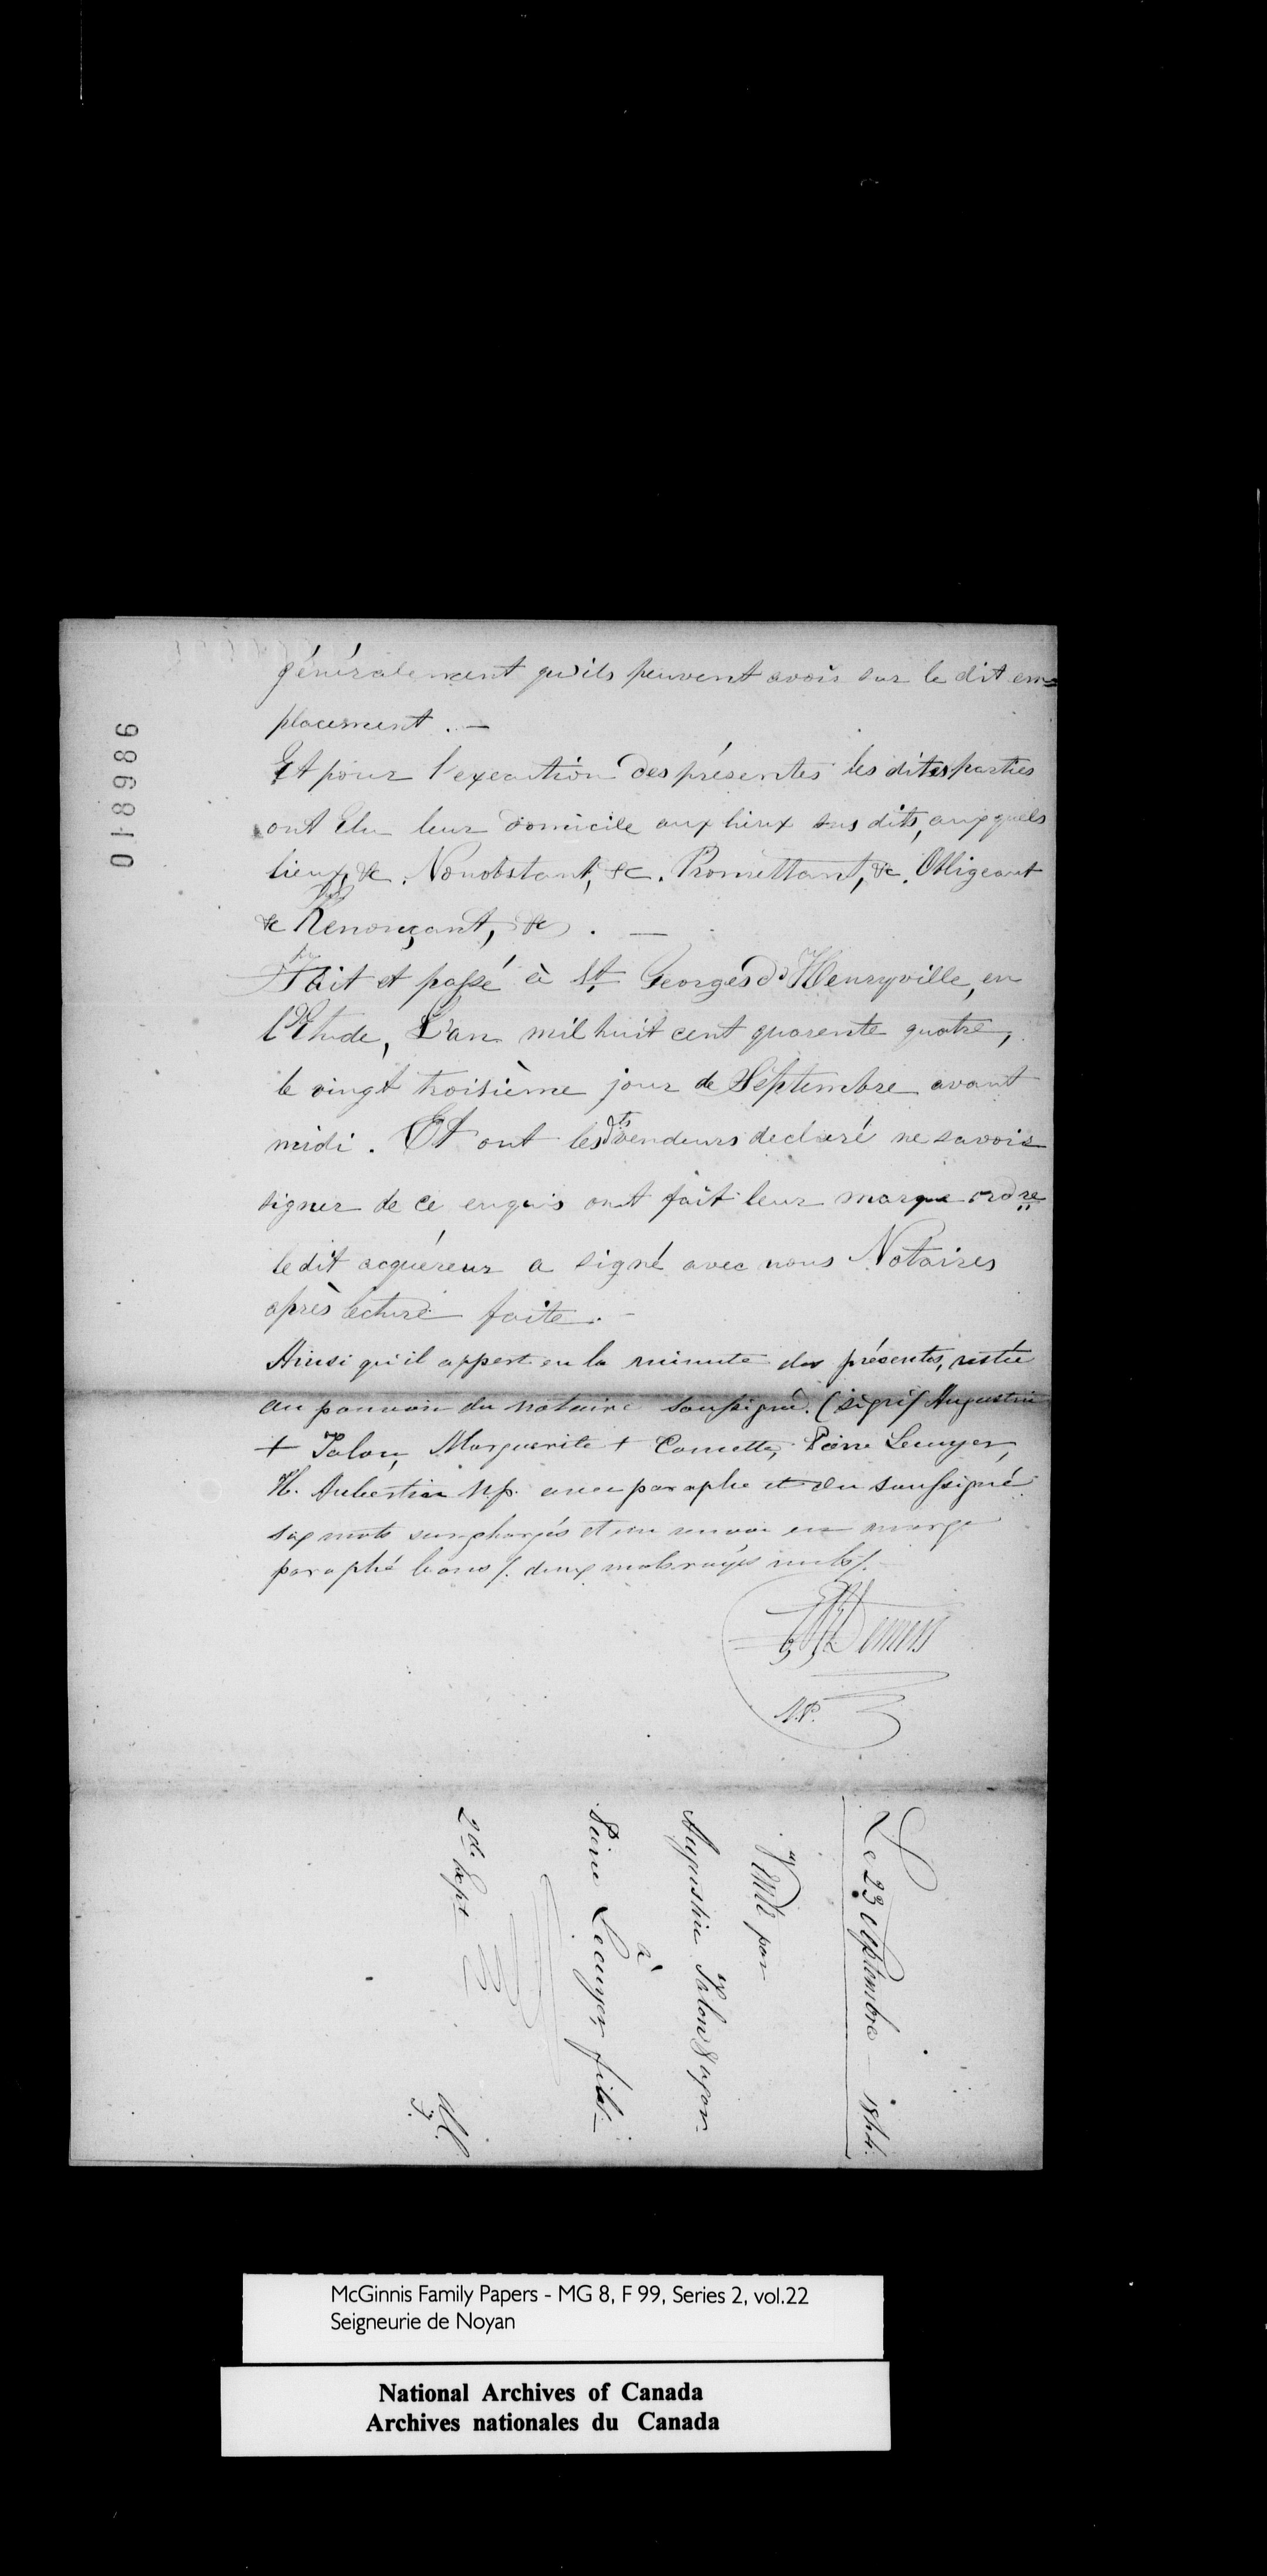 018986
généralement qu'ils peuvent avoir sur le dit em=
placement . —
Et pour l'execution des présentes les dites parties
ont élu leur domicile aux lieux sus dits, auxquels
lieux, &c. Nonobstant, &c. Promettant, &c. Obligeant
&c Renonçant, &c . —
Fait et passé à St. Georges d'Henryville, en
l'Etude, L'an mil huit cent quarente quatre,
le vingt troisième jour de Septembre avant
midi . Et ont les dts vendeurs declaré ne savoir
signer de ce enquis ont fait leur marque ordre
le dit acquéreur a signé avec nous Notaires
après lecture faite. —
Ainsi qu'il appert en la minute des présentes, restée
au pouvoir du notaire soussigné. (signé) Augustin
+ Talon, Marguerite + Comette, Pierre Lecuyer,
H. Aubertin N.p. avec paraphe et du soussigné
six mots surchargés et un renvoi en marge
paraphé bons /. deux mots rayés nuls /.
Demers
N.P.
Le 23 Septembre — 1844.
Vente par
Augustin Talon & uxor
à
Pierre Lecuyer fils —
2de Expé
McGinnis Family Papers - MG 8, F 99, Series 2, vol.22
Seigneurie de Noyan
National Archives of Canada
Archives nationales du Canada